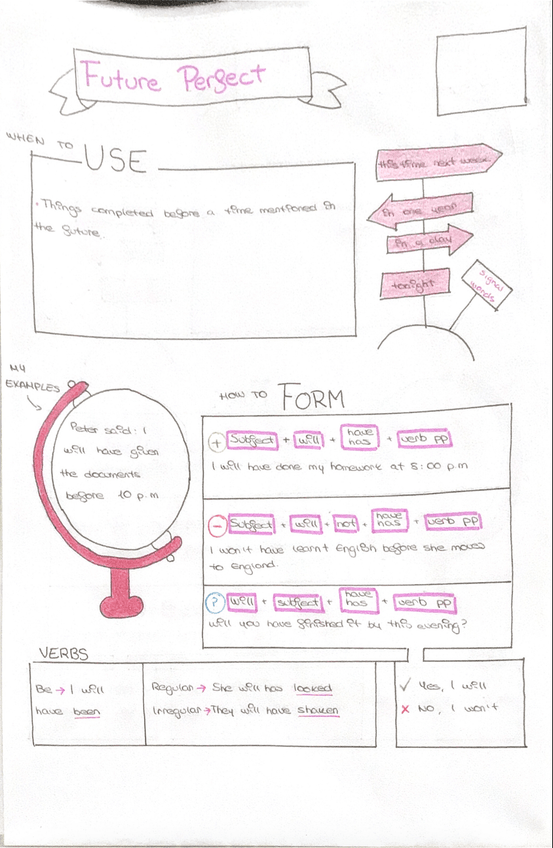 Future Perfect
WHEN TO USE
• Things completed before a time mentioned in
the future
this time next week
in one year
in a day
tonight
signal
words
MY
EXAMPLES
Peter said: I
will have given
the documents
before 10 p.m
HOW TO FORM
+ Subject + will + have has + verb pp
I will have done my homework at 8:00 p.m
- Subject + will + not + have has + verb pp
I won't have learnt English before she moves
to England.
? will + subject + have has + verb pp
will you have finished it by this evening?
VERBS
Be → I will
have been
Regular → She will has looked
Irregular → They will have shaken
✓ Yes, I will
✗ No, I won't